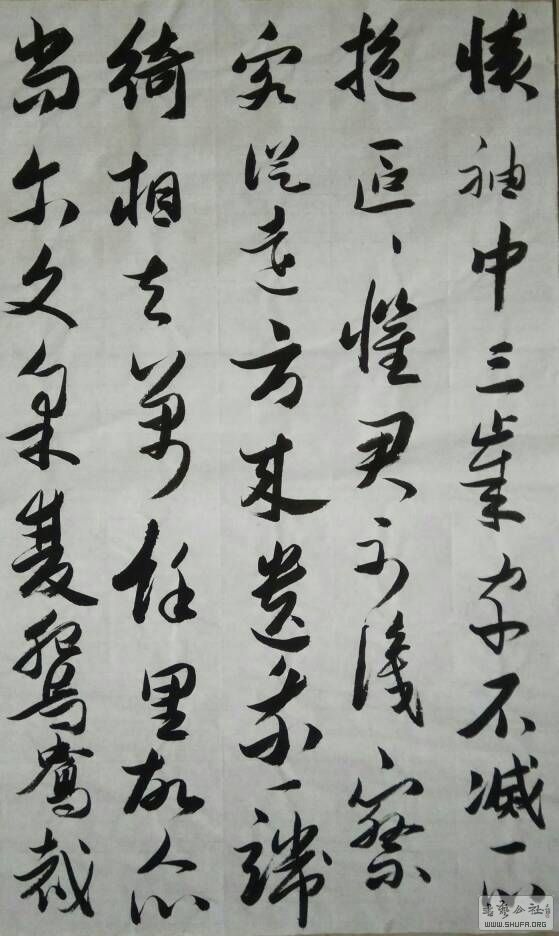 懷袖中三歲字不滅一心
抱區々懼君不識察
客從遠方來遺我一端
綺相去萬餘里故人心
尚尔文采雙鴛鴦裁
书艺公社
WWW.SHUFA.ORG